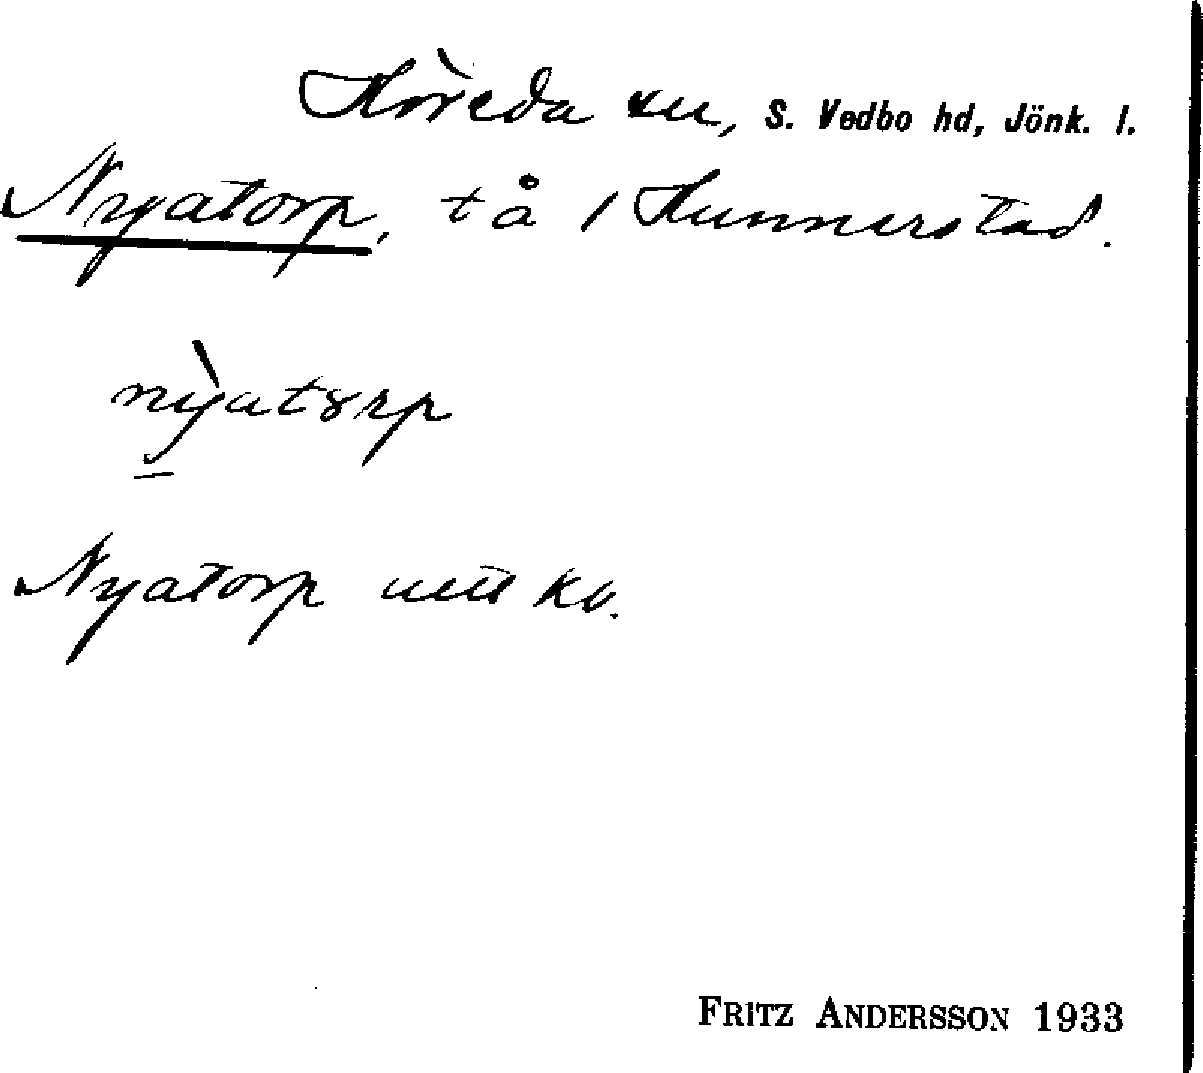 Höreda sn, S. Vedbo hd, Jönk. l.
Nyatorp, t å 1 Hunnerstad.
nỳatɤrp
Nyatorp utt kv.
FRITZ ANDERSSON 1933